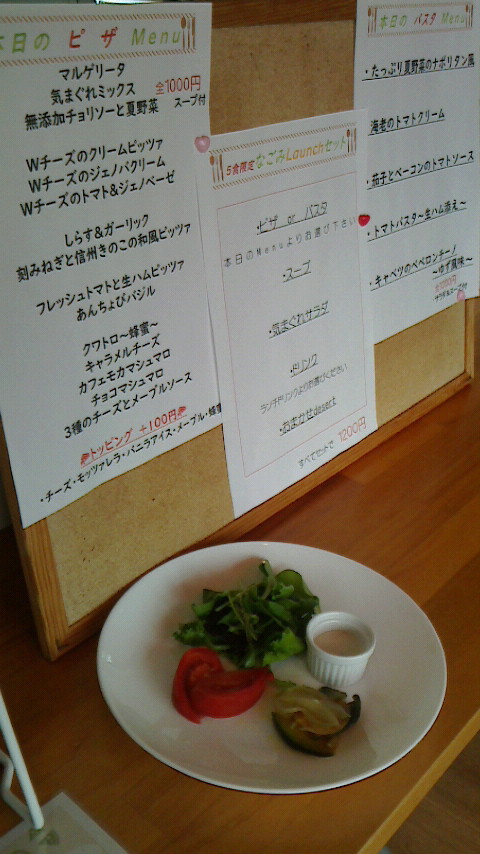 本日の ピザ Menu
マルゲリータ
気まぐれミックス
無添加チョリソーと夏野菜
全1000円
スープ付
Wチーズのクリームピッツァ
Wチーズのジェノバクリーム
Wチーズのトマト&ジェノベーゼ
しらす&ガーリック
刻みねぎと信州きのこの和風ピッツァ
フレッシュトマトと生ハムピッツァ
あんちょびバジル
クワトロ~蜂蜜~
キャラメルチーズ
カフェモカマシュマロ
チョコマシュマロ
3種のチーズとメープルソース
トッピング +100円
・チーズ・モッツァレラ・バニラアイス・メープル・蜂蜜
5食限定 なごみLaunchセット
・ピザ or パスタ
本日のMenuよりお選び下さい
・スープ
・気まぐれサラダ
・ドリンク
ランチドリンクよりお選びください
・おまかせdesert
すべてセットで 1200円
本日の パスタ Menu
・たっぷり夏野菜のナポリタン風
海老のトマトクリーム
・茄子とベーコンのトマトソース
・トマトバスター生ハム添え~
・キャベツのペペロンチーノ
~ゆず風味~
全1000円
サラダ&スープ付